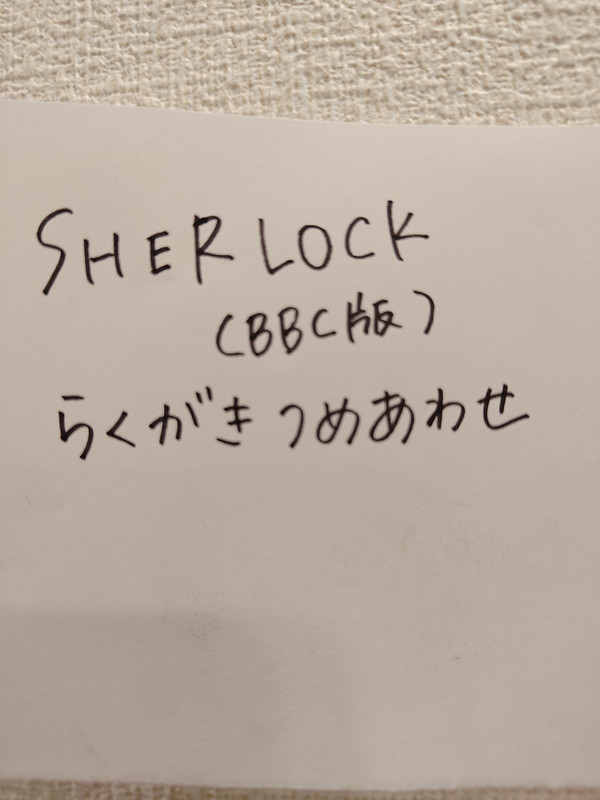 SHERLOCK
(BBC版)
らくがきつめあわせ